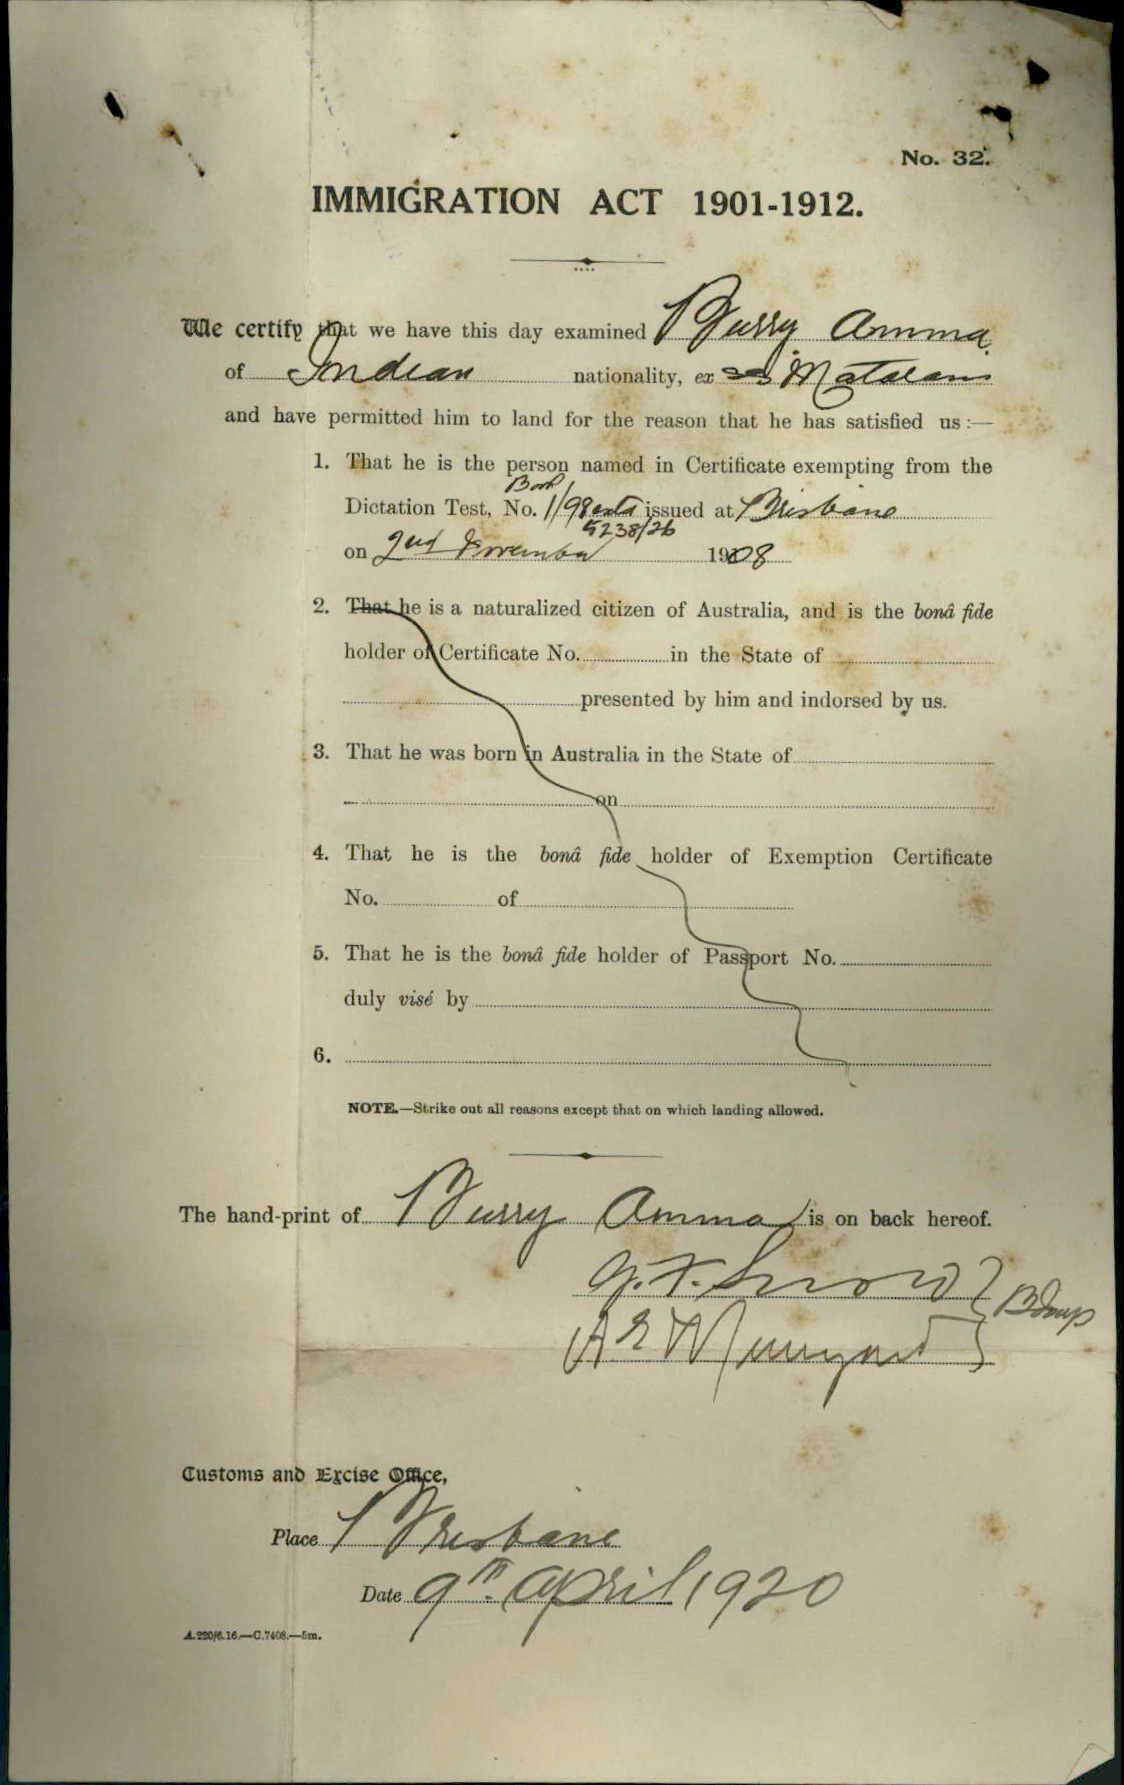 No. 32.
IMMIGRATION ACT 1901-1912.
We certify that we have this day examined Burry Amma
of Indian nationality, ex SS Mataram
and have permitted him to land for the reason that he has satisfied us :—
1. That he is the person named in Certificate exempting from the
Book
Dictation Test, No. 1/98 issued at Brisbane
5238/26
on 2nd November 1908
2. That he is a naturalized citizen of Australia, and is the bonâ fide
holder of Certificate No. in the State of
presented by him and indorsed by us.
3. That he was born in Australia in the State of
on
4. That he is the bonâ fide holder of Exemption Certificate
No. of
5. That he is the bonâ fide holder of Passport No.
duly visé by
6.
NOTE.—Strike out all reasons except that on which landing allowed.
The hand-print of Burry Amma is on back hereof.
G. F. Snow
Customs and Excise Office,
Place Brisbane
Date 9th April 1920
A.220/6.16.—C.7408.—5m.